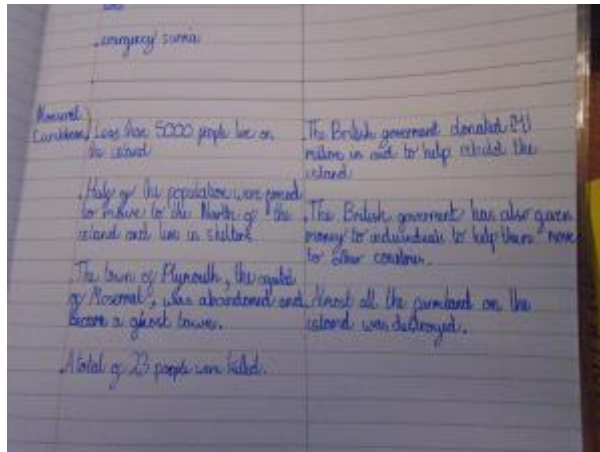 .emergency
Moserrat
Caribbean
. Less than 5000 people live on
the island
. Half of the population were forced
to move to the North of the
island and live in shelters.
. The town of Plymouth, the capital
of Moserrat, was abandoned and
became a ghost town.
. A total of 23 people were killed.
. The British goverment donated £41
million in aid to help rebuild the
island
. The British goverment has also given
money to individuals to help them move
to other countries.
. Almost all the farmland on the
island was destroyed.